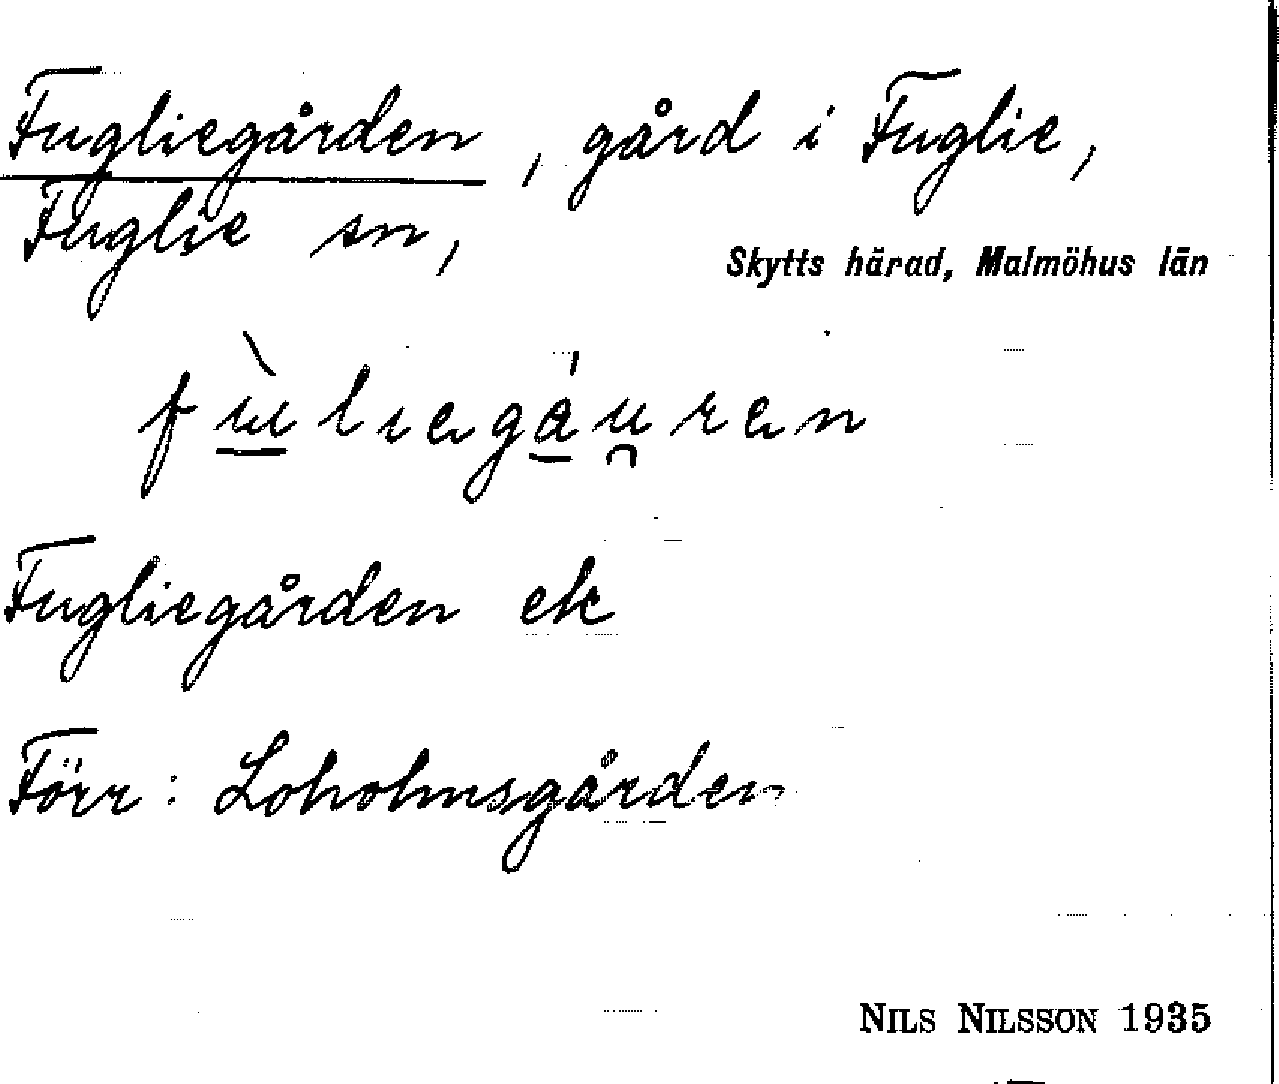 Fugliegården, gård i Fuglie,
Fuglie sn,
Skytts härad, Malmöhus län
Fugliegården ek
Förr: Loholmsgården
NILS NILSSON 1935